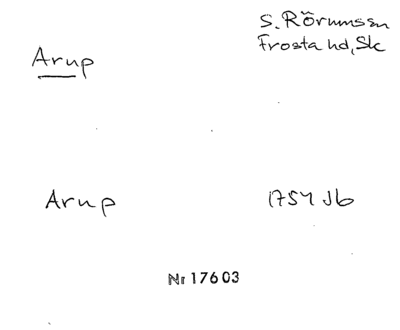 Arup
S. Rörumssn
Frosta hd, Sk
Arup
1754 Jb
Nr 17603